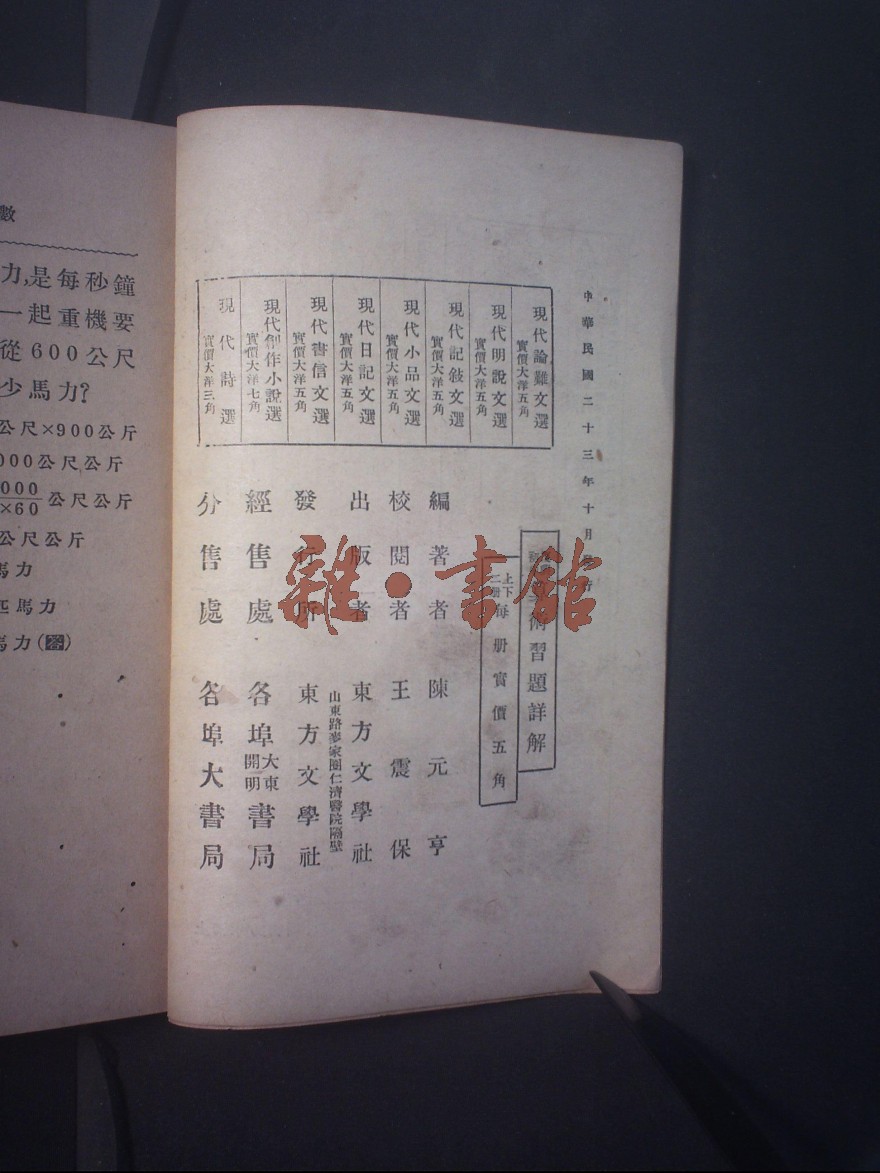 中華民國二十三年十月
術習題詳解
上下二册 每册實價五角
現代論難文選 實價大洋五角
現代明說文選 實價大洋五角
現代記敍文選 實價大洋五角
現代小品文選 實價大洋五角
現代日記文選 實價大洋五角
現代書信文選 實價大洋五角
現代創作小說選 實價大洋七角
現代詩選 實價大洋三角
編著者 陳元亨
校閱者 王震保
出版者 東方文學社
山東路麥家圈仁濟醫院隔壁
發行所 東方文學社
經售處 各埠大東開明書局
分售處 各埠大書局
雜·書館
數
力,是每秒鐘
一起重機要
從600公尺
少馬力?
公尺×900公斤
000公尺公斤
000
×60
公尺公斤
公尺公斤
馬力
匹馬力
馬力(答)